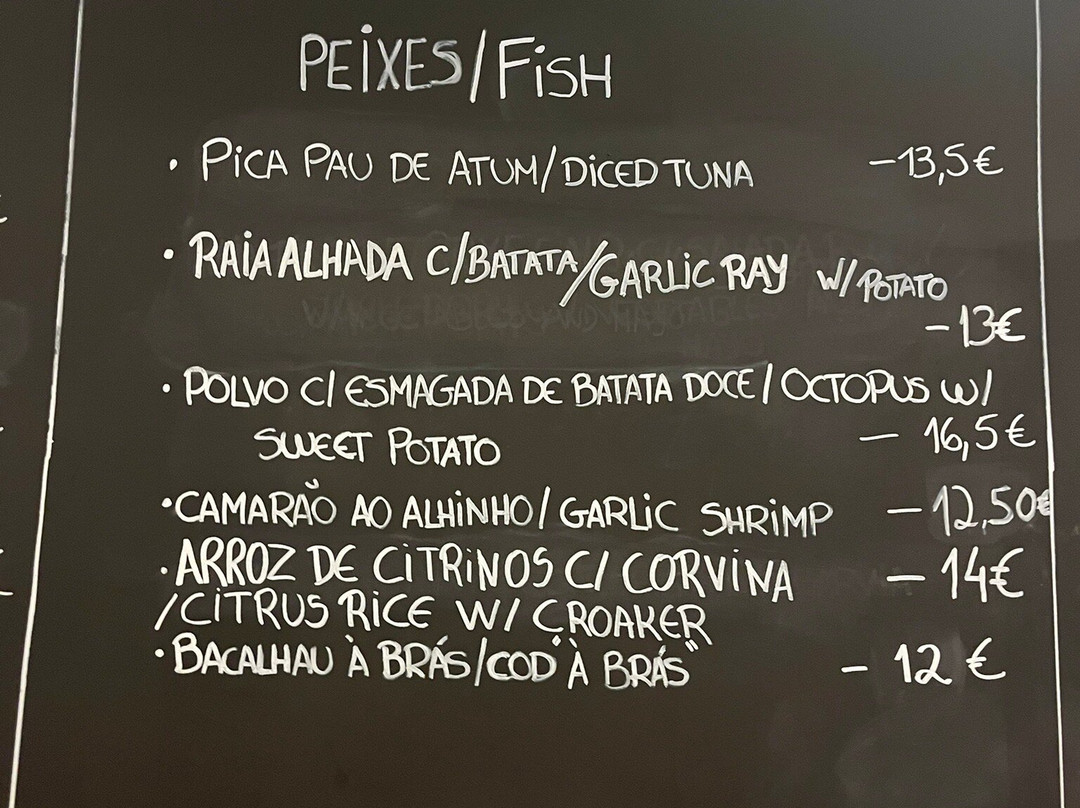 PEIXES/FISH
• PICA PAU DE ATUM/DICED TUNA -13,5€
• RAIA ALHADA C/BATATA/GARLIC RAY W/POTATO
-13€
• POLVO C/ ESMAGADA DE BATATA DOCE/OCTOPUS W/
SWEET POTATO - 16,5€
• CAMARÃO AO ALHINHO/GARLIC SHRIMP - 12,50€
• ARROZ DE CITRINOS C/ CORVINA - 14€
/CITRUS RICE W/ CROAKER
• BACALHAU À BRÁS/COD "À BRÁS" - 12€